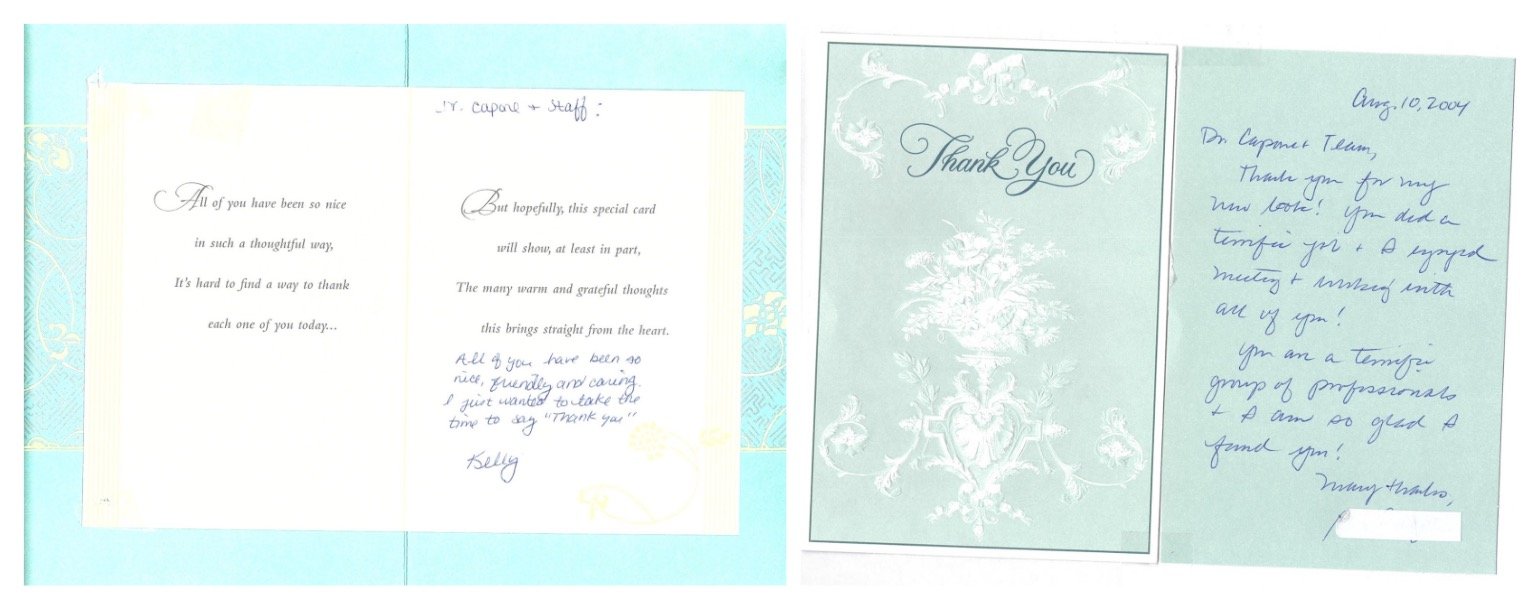 Dr. Capone + Staff:
All of you have been so nice
in such a thoughtful way,
It's hard to find a way to thank
each one of you today...
But hopefully, this special card
will show, at least in part,
The many warm and grateful thoughts
this brings straight from the heart.
All of you have been so
nice, friendly and caring.
I just wanted to take the
time to say "Thank you"
Kelly
Thank You
Aug. 10, 2004
Dr. Capone + Team,
Thank you for my
new look! You did a
terrific job + I enjoyed
meeting + working with
all of you!
You are a terrific
group of professionals
+ I am so glad I
found you!
Many thanks,